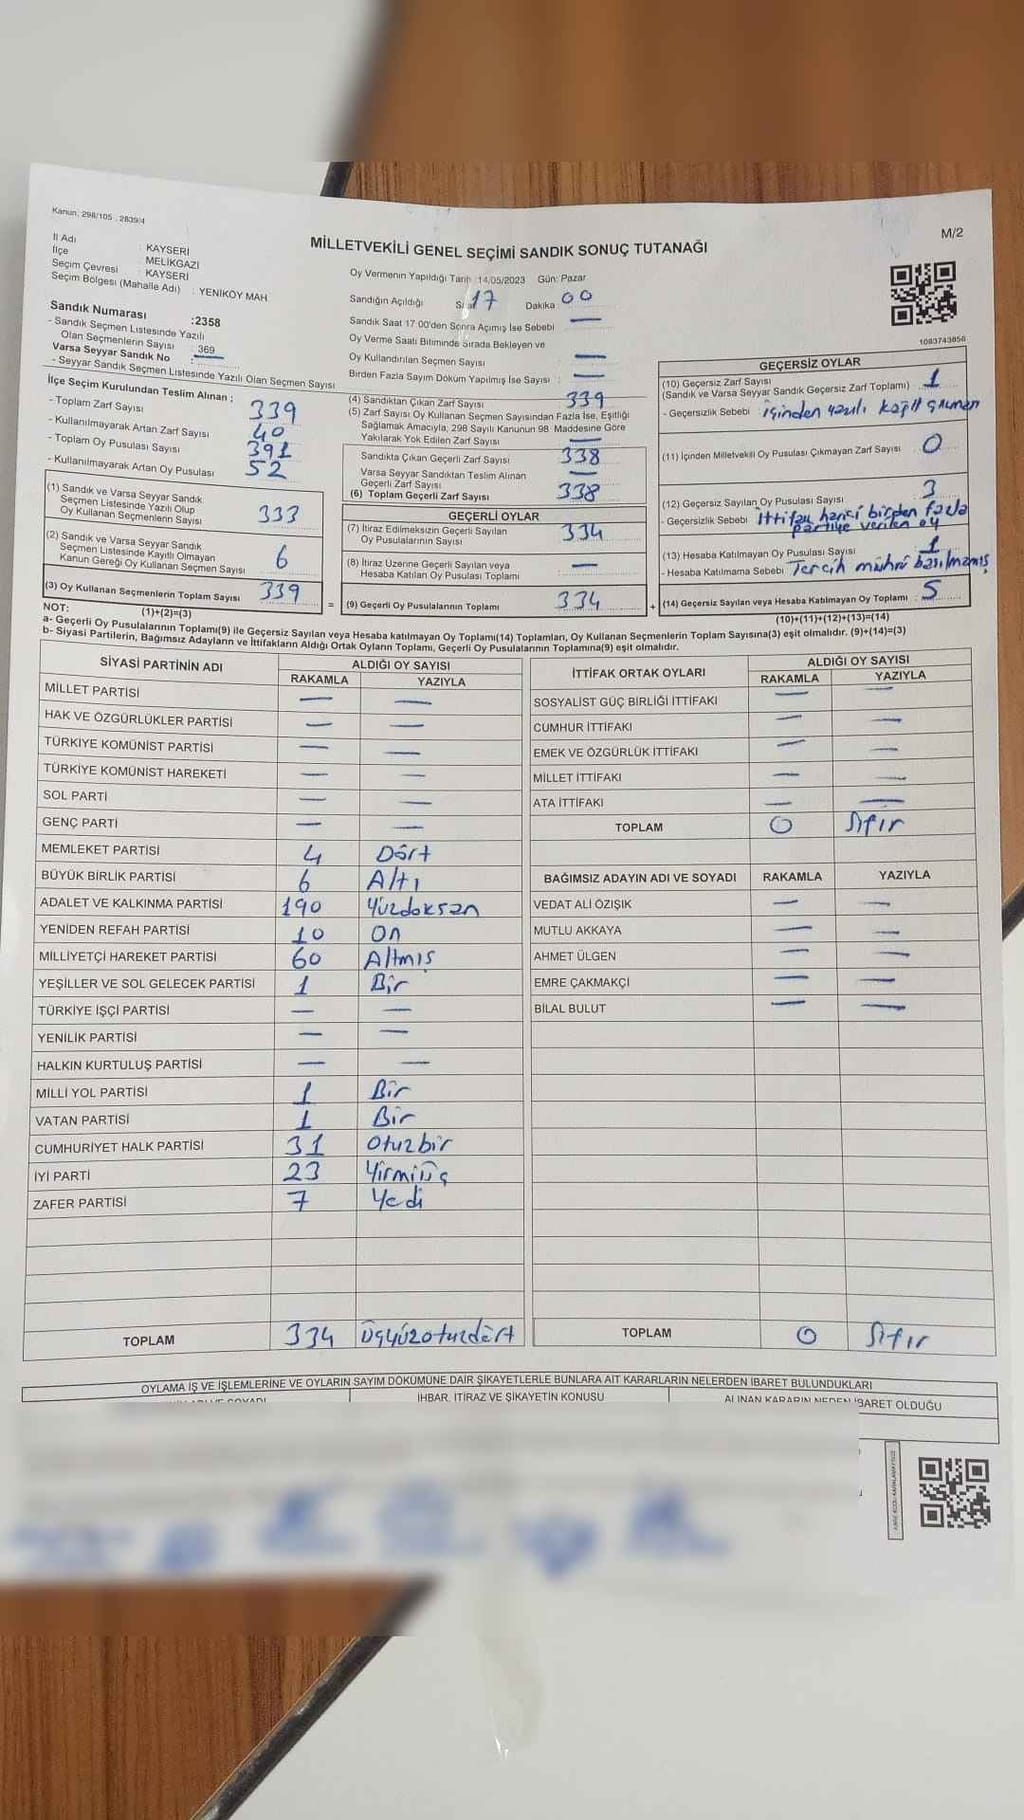 Kanun, 298/105 , 2839/4
M/2
MİLLETVEKİLİ GENEL SEÇİMİ SANDIK SONUÇ TUTANAĞI
İl Adı KAYSERİ
İlçe MELİKGAZİ
Seçim Çevresi KAYSERİ
Seçim Bölgesi (Mahalle Adı) : YENİKÖY MAH
Sandık Numarası :2358
- Sandık Seçmen Listesinde Yazılı
Olan Seçmenlerin Sayısı : 369
Varsa Seyyar Sandık No : —
- Seyyar Sandık Seçmen Listesinde Yazılı Olan Seçmen Sayısı
Oy Vermenin Yapıldığı Tarih :14/05/2023 Gün: Pazar
Sandığın Açıldığı Saat 17 Dakika 00
Sandık Saat 17 00'den Sonra Açılmış İse Sebebi —
Oy Verme Saati Bitiminde Sırada Bekleyen ve
Oy Kullandırılan Seçmen Sayısı —
Birden Fazla Sayım Döküm Yapılmış İse Sayısı : —
1093743856
İlçe Seçim Kurulundan Teslim Alınan ;
- Toplam Zarf Sayısı 339
- Kullanılmayarak Artan Zarf Sayısı 40
- Toplam Oy Pusulası Sayısı 391
- Kullanılmayarak Artan Oy Pusulası 52
(1) Sandık ve Varsa Seyyar Sandık
Seçmen Listesinde Yazılı Olup
Oy Kullanan Seçmenlerin Sayısı 333
(2) Sandık ve Varsa Seyyar Sandık
Seçmen Listesinde Kayıtlı Olmayan
Kanun Gereği Oy Kullanan Seçmen Sayısı 6
(3) Oy Kullanan Seçmenlerin Toplam Sayısı 339
(4) Sandıktan Çıkan Zarf Sayısı 339
(5) Zarf Sayısı Oy Kullanan Seçmen Sayısından Fazla İse, Eşitliği
Sağlamak Amacıyla, 298 Sayılı Kanunun 98 Maddesine Göre
Yakılarak Yok Edilen Zarf Sayısı —
Sandıkta Çıkan Geçerli Zarf Sayısı 338
Varsa Seyyar Sandıktan Teslim Alınan
Geçerli Zarf Sayısı —
(6) Toplam Geçerli Zarf Sayısı 338
GEÇERLİ OYLAR
(7) İtiraz Edilmeksizin Geçerli Sayılan
Oy Pusulalarının Sayısı 334
(8) İtiraz Üzerine Geçerli Sayılan veya
Hesaba Katılan Oy Pusulası Toplamı —
= (9) Geçerli Oy Pusulalarının Toplamı 334
GEÇERSİZ OYLAR
(10) Geçersiz Zarf Sayısı
(Sandık ve Varsa Seyyar Sandık Geçersiz Zarf Toplamı) 1
- Geçersizlik Sebebi içinden yazılı kağıt çıkması
(11) İçinden Milletvekili Oy Pusulası Çıkmayan Zarf Sayısı 0
(12) Geçersiz Sayılan Oy Pusulası Sayısı 3
- Geçersizlik Sebebi İttifak harici birden fazla
partiye verilen oy
(13) Hesaba Katılmayan Oy Pusulası Sayısı 1
- Hesaba Katılmama Sebebi Tercih mührü basılmamış
+ (14) Geçersiz Sayılan veya Hesaba Katılmayan Oy Toplamı : 5
NOT: (1)+(2)=(3) (10)+(11)+(12)+(13)=(14)
a- Geçerli Oy Pusulalarının Toplamı(9) ile Geçersiz Sayılan veya Hesaba katılmayan Oy Toplamı(14) Toplamları, Oy Kullanan Seçmenlerin Toplam Sayısına(3) eşit olmalıdır. (9)+(14)=(3)
b- Siyasi Partilerin, Bağımsız Adayların ve İttifakların Aldığı Ortak Oyların Toplamı, Geçerli Oy Pusulalarının Toplamına(9) eşit olmalıdır.
SİYASİ PARTİNİN ADI ALDIĞI OY SAYISI
RAKAMLA YAZIYLA
MİLLET PARTİSİ — —
HAK VE ÖZGÜRLÜKLER PARTİSİ — —
TÜRKİYE KOMÜNİST PARTİSİ — —
TÜRKİYE KOMÜNİST HAREKETİ — —
SOL PARTİ — —
GENÇ PARTİ — —
MEMLEKET PARTİSİ 4 Dört
BÜYÜK BİRLİK PARTİSİ 6 Altı
ADALET VE KALKINMA PARTİSİ 190 Yüzdoksan
YENİDEN REFAH PARTİSİ 10 On
MİLLİYETÇİ HAREKET PARTİSİ 60 Altmış
YEŞİLLER VE SOL GELECEK PARTİSİ 1 Bir
TÜRKİYE İŞÇİ PARTİSİ — —
YENİLİK PARTİSİ — —
HALKIN KURTULUŞ PARTİSİ — —
MİLLİ YOL PARTİSİ 1 Bir
VATAN PARTİSİ 1 Bir
CUMHURİYET HALK PARTİSİ 31 Otuzbir
İYİ PARTİ 23 Yirmiüç
ZAFER PARTİSİ 7 Yedi
TOPLAM 334 Üçyüzotuzdört
İTTİFAK ORTAK OYLARI ALDIĞI OY SAYISI
RAKAMLA YAZIYLA
SOSYALİST GÜÇ BİRLİĞİ İTTİFAKI — —
CUMHUR İTTİFAKI — —
EMEK VE ÖZGÜRLÜK İTTİFAKI — —
MİLLET İTTİFAKI — —
ATA İTTİFAKI — —
TOPLAM 0 Sıfır
BAĞIMSIZ ADAYIN ADI VE SOYADI RAKAMLA YAZIYLA
VEDAT ALİ ÖZIŞIK — —
MUTLU AKKAYA — —
AHMET ÜLGEN — —
EMRE ÇAKMAKÇİ — —
BİLAL BULUT — —
TOPLAM 0 Sıfır
OYLAMA İŞ VE İŞLEMLERİNE VE OYLARIN SAYIM DÖKÜMÜNE DAİR ŞİKAYETLERLE BUNLARA AİT KARARLARIN NELERDEN İBARET BULUNDUKLARI
İHBAR, İTİRAZ VE ŞİKAYETİN KONUSU
ALINAN KARARIN NEDEN İBARET OLDUĞU